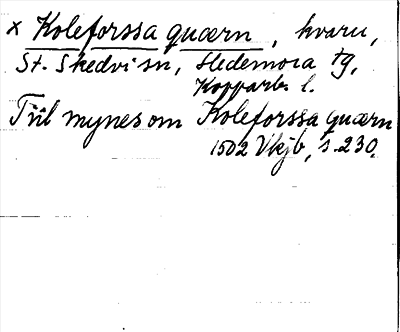 x Koleforssa quærn, kvarn,
St. Skedvi sn, Hedemora tg,
Kopparb. l.
Till mynes om Koleforssa quærn
1502 Vkjb, s. 230.